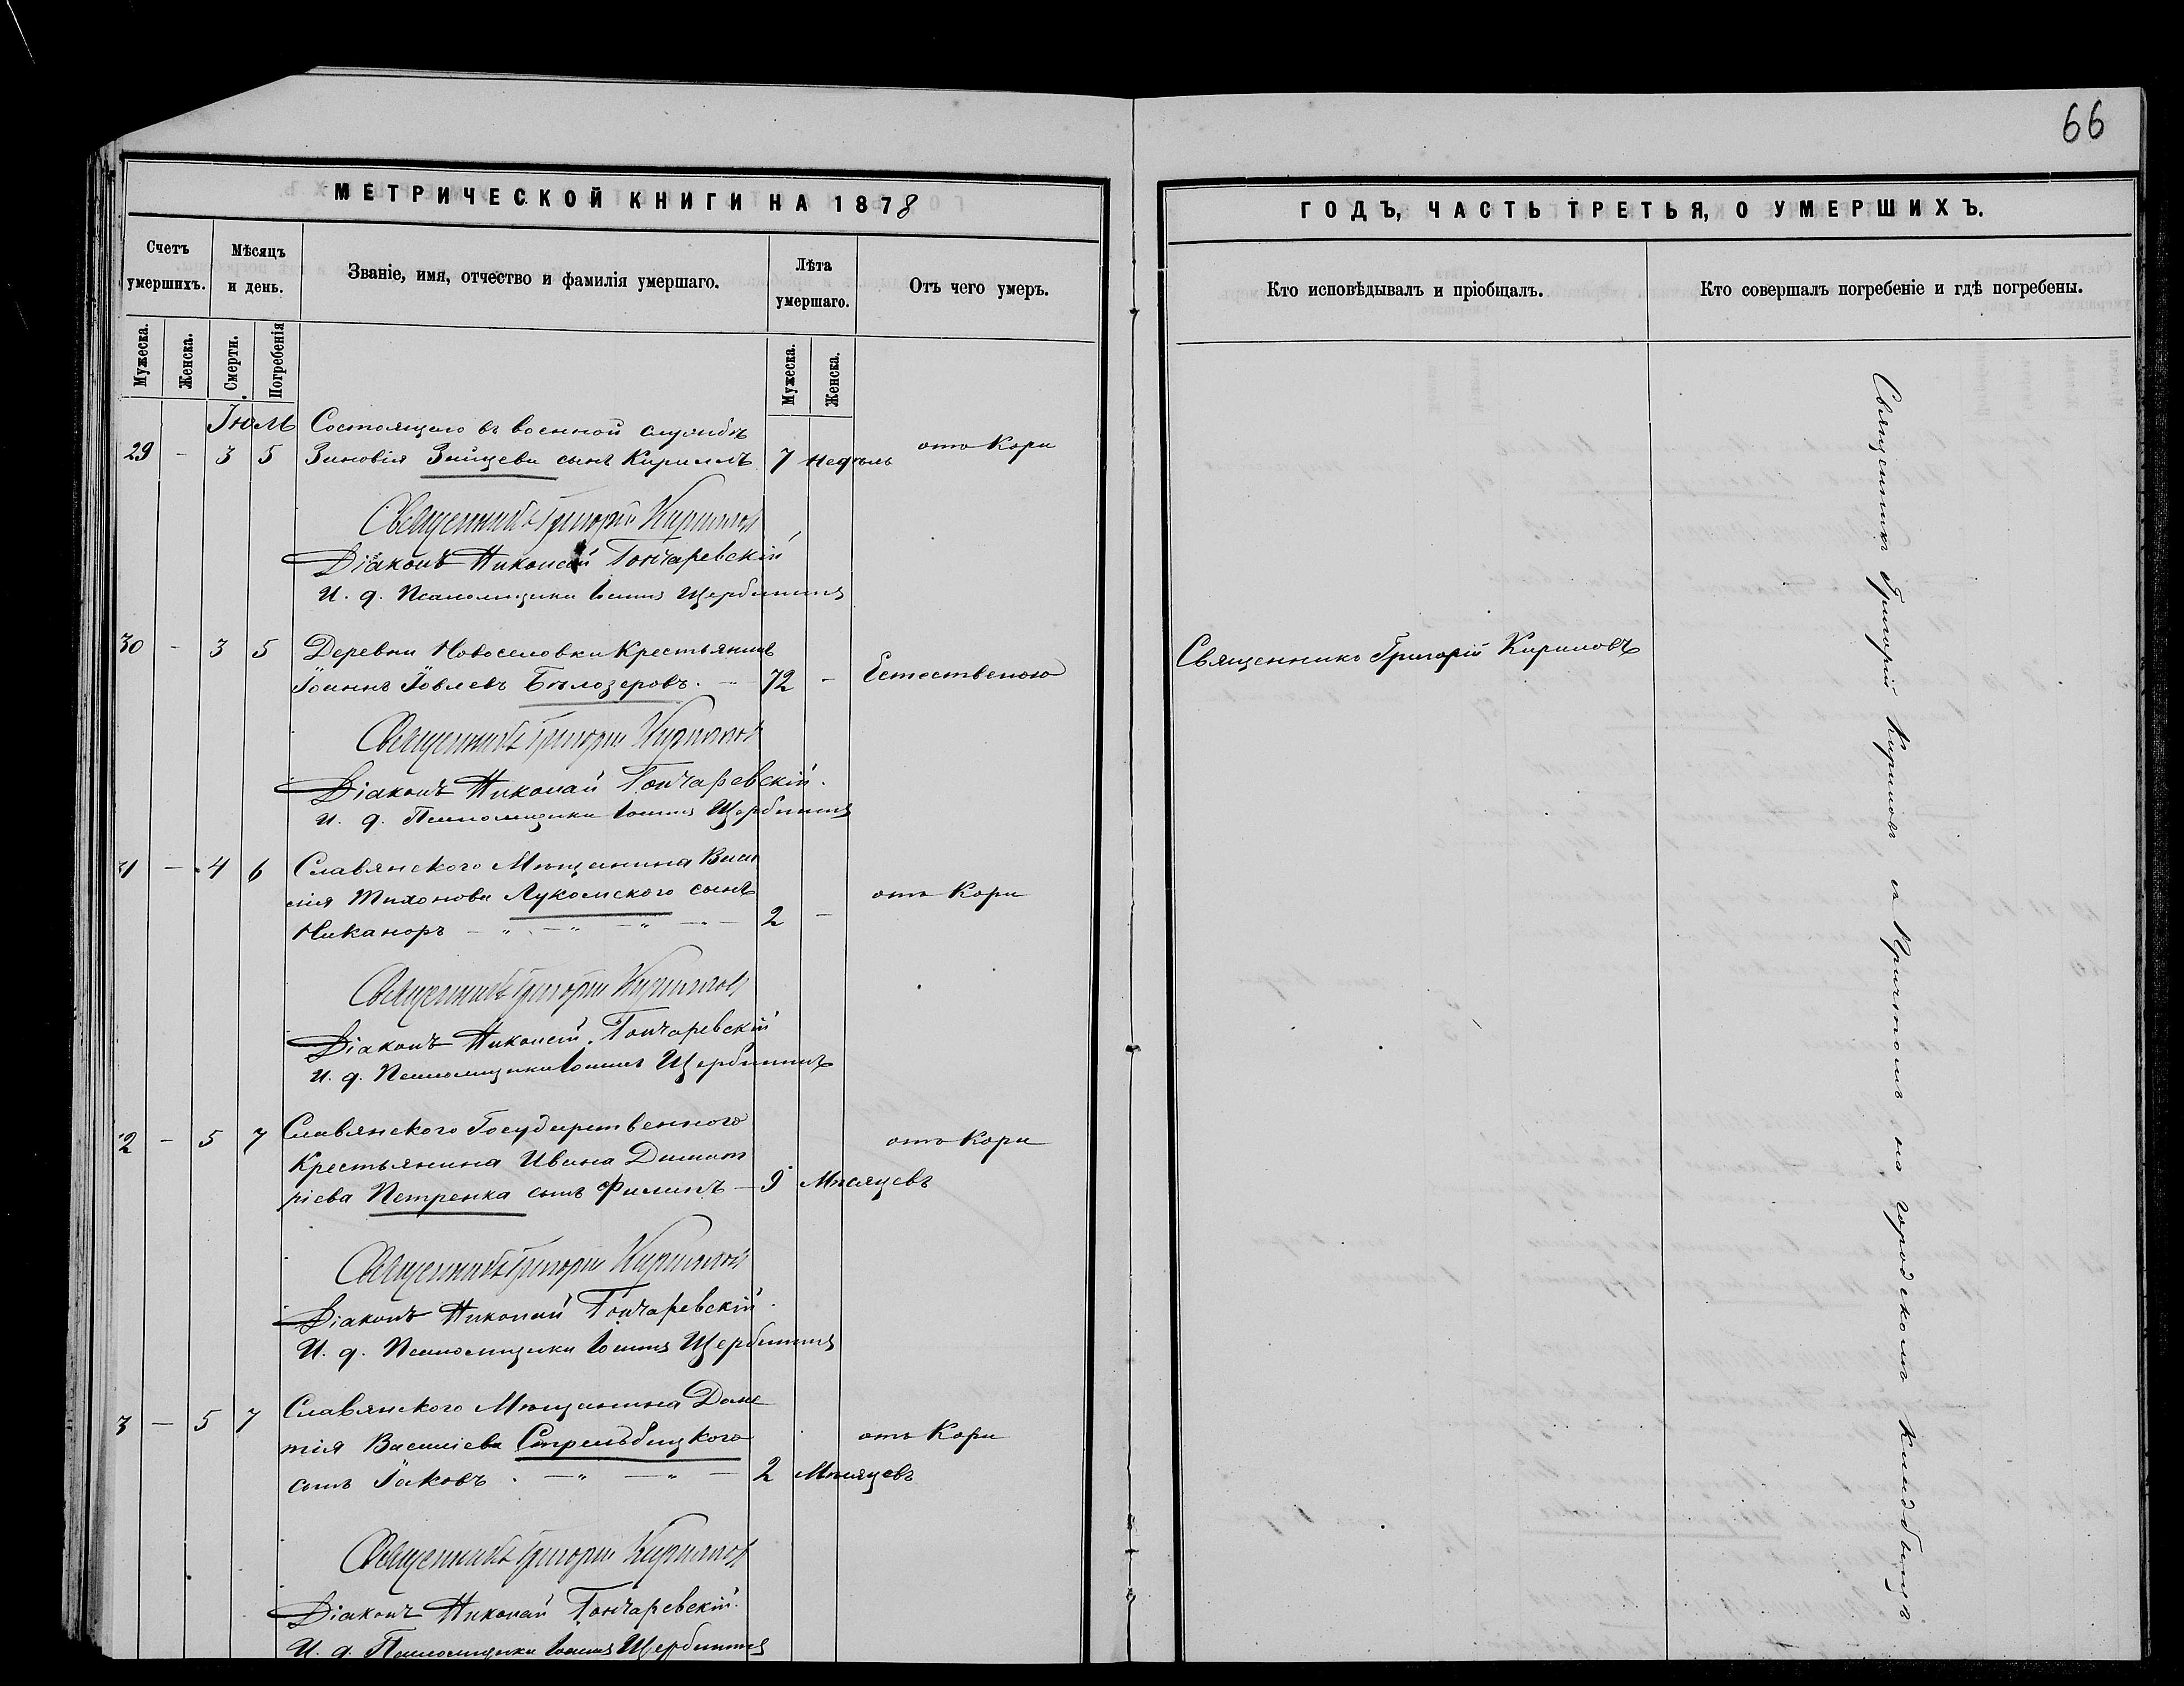 66
МЕТРИЧЕСКОЙ КНИГИ НА 1878
Счетъ умершихъ.
Мѣсяцъ и день.
Званіе, имя, отчество и фамилія умершаго.
Лѣта умершаго.
Отъ чего умеръ.
Мужеска.
Женска.
Смерти.
Погребенія
Мужеска.
Женска.
Іюль Состоящаго въ военной службѣ
29 - 3 5 Зиновія Зайцева сынъ Кириллъ 7 недѣль отъ Кори
Священникъ Григорій Кириловъ
Діаконъ Николай Гончаревскій
И. д. Псаломщика Іоаннъ Щербининъ
30 - 3 5 Деревни Новоселовки Крестьянинъ
Іоаннъ Іовлевъ Бѣлозеровъ. 72 - Естественою
Священникъ Григорій Кириловъ
Діаконъ Николай Гончаревскій.
И. д. Псаломщика Іоаннъ Щербининъ
31 - 4 6 Славянскаго Мѣщанина Васи
лія Тихонова Лукомского сынъ отъ Кори
Никаноръ - " - " - " - - 2 -
Священникъ Григорій Кириловъ
Діаконъ Николай Гончаревскій
И. д. Псаломщика Іоаннъ Щербининъ
2 - 5 7 Славянского Государственного отъ Кори
Крестьянина Ивана Димит
ріева Петренка сынъ Филипъ - 9 Мѣсяцевъ
Священникъ Григорій Кириловъ
Діаконъ Николай Гончаревскій.
И. д. Псаломщика Іоаннъ Щербининъ
3 - 5 7 Славянского Мѣщанина Доме
тія Василіева Стрельбицкого отъ Кори
сынъ Іаковъ . - " - " - 2 Мѣсяцевъ
Священникъ Григорій Кириловъ
Діаконъ Николай Гончаревскій.
И. д. Псаломщика Іоаннъ Щербининъ
ГОДЪ, ЧАСТЬ ТРЕТЬЯ, О УМЕРШИХЪ.
Кто исповѣдывалъ и пріобщалъ.
Кто совершалъ погребеніе и гдѣ погребены.
Священникъ Григорій Кириловъ
Священникъ Григорій Кириловъ съ Причтомъ на городскомъ Кладбищѣ